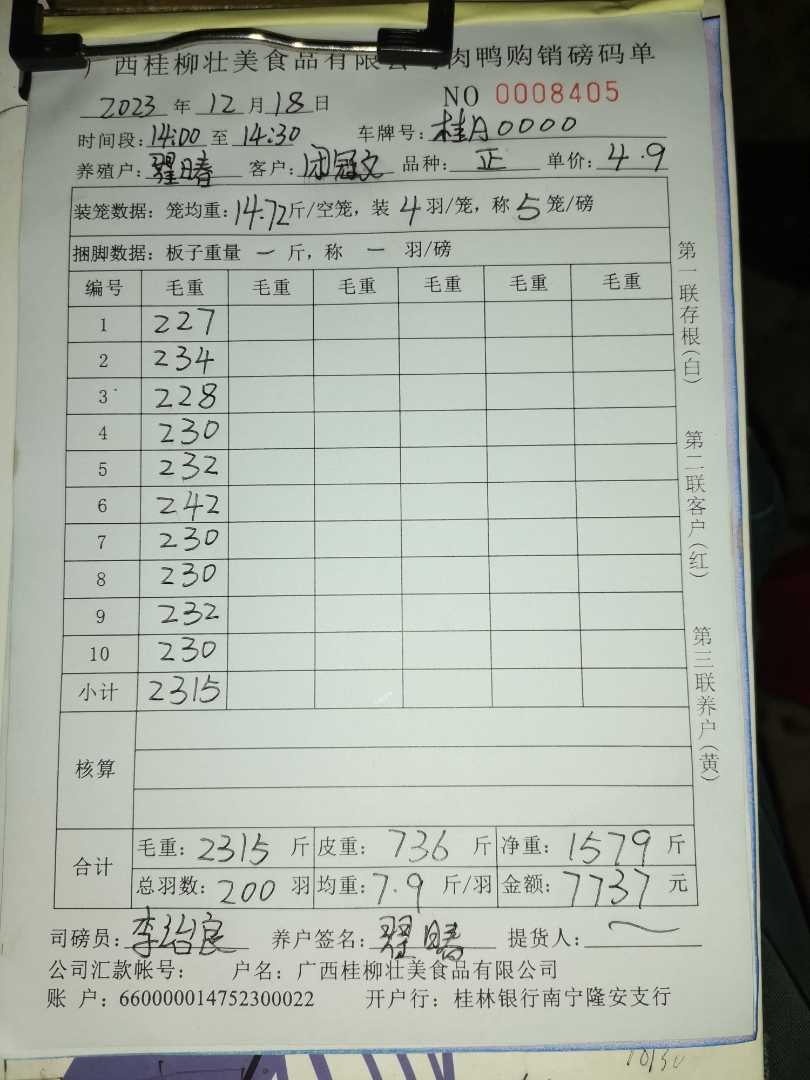 广西桂柳壮美食品有限公司肉鸭购销磅码单
2023 年 12 月 18 日 NO 0008405
时间段: 14:00 至 14:30 车牌号: 桂A0000
养殖户: 翟晴 客户: 闭冠文 品种: 正 单价: 4.9
装笼数据: 笼均重: 14.72 斤/空笼, 装 4 羽/笼, 称 5 笼/磅
捆脚数据: 板子重量 一 斤, 称 一 羽/磅
编号 毛重 毛重 毛重 毛重 毛重 毛重
1 227
2 234
3 228
4 230
5 232
6 242
7 230
8 230
9 232
10 230
小计 2315
核算
合计 毛重: 2315 斤 皮重: 736 斤 净重: 1579 斤
总羽数: 200 羽 均重: 7.9 斤/羽 金额: 7737 元
司磅员: 李绍良 养户签名: 翟晴 提货人:
公司汇款帐号: 户名: 广西桂柳壮美食品有限公司
账 户: 660000014752300022 开户行: 桂林银行南宁隆安支行
第一联存根(白)
第二联客户(红)
第三联养户(黄)